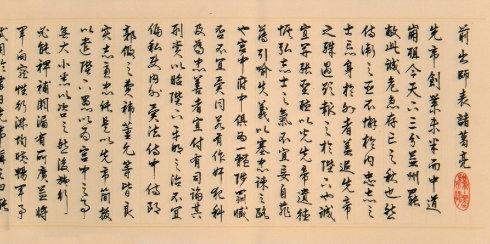 前出師表諸葛亮
先帝創業未半而中道
崩殂今天下三分益州罷
敝此誠危急存亡之秋也然
侍衛之臣不懈於內忠志之
士忘身於外者蓋追先帝
之殊遇欲報之於陛下也誠
宜開張聖聽以光先帝遺德
恢弘志士之氣不宜妄自菲
薄引喻失義以塞忠諫之路
也宮中府中俱為一體陟罰臧
否不宜異同若有作奸犯科
及為忠善者宜付有司論其
刑賞以昭陛下平明之治不宜
偏私使內外異法也侍中侍郎
郭攸之費禕董允等此皆良
實志慮忠純是以先帝簡拔
以遺陛下愚以為宮中之事
無大小悉以咨之然後施行
必能裨補闕漏有所廣益將
軍向寵性行淑均曉暢軍事